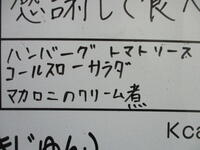 感謝して食べ
ハンバーグ トマトソース
コールスローサラダ
マカロニのクリーム煮
Kca